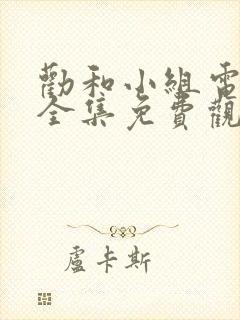 勸和小組電
全集免費觀
盧卡斯